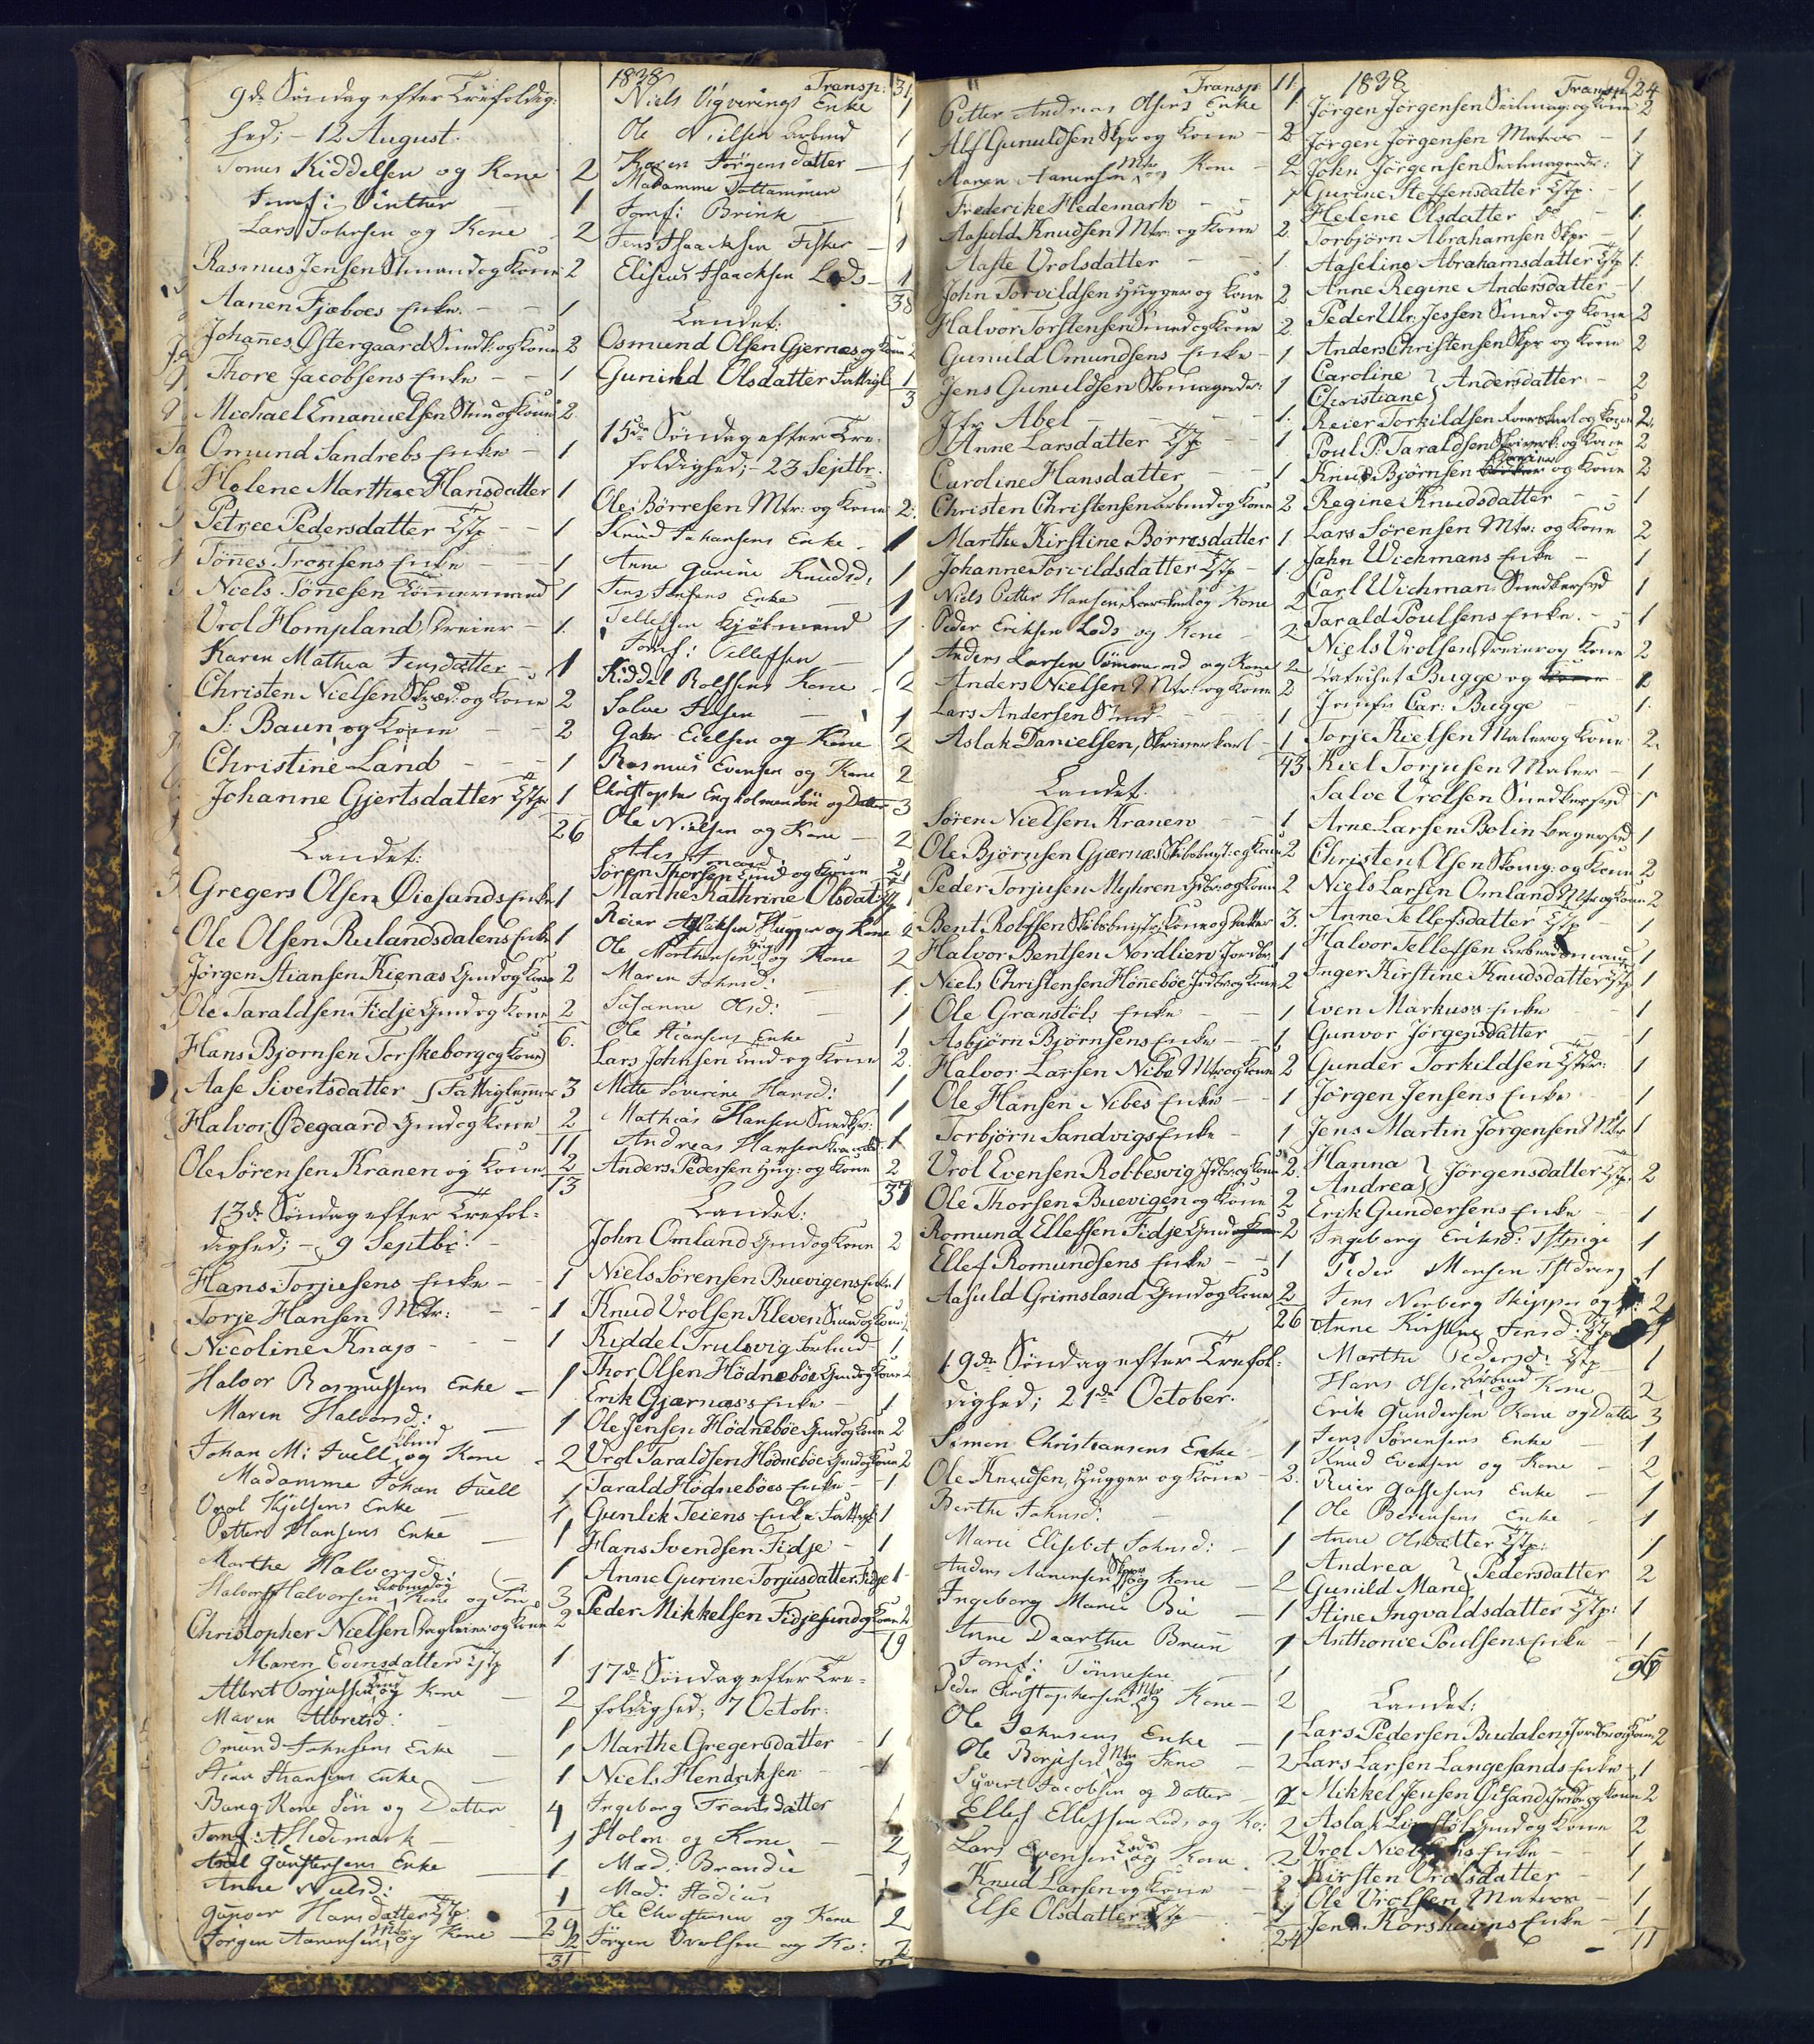 9de Søndag efter Trefoldig-
hed; - 12 August.
Tomes Kiddelsen og Kone 2
Jomf: Vinther - 1
Lars Johnsen og Kone 2
Rasmus Jensen Stmand og Kone 2
Aanen Fjæboes Enke - - 1
Johannes Østergaard Smedk: og Kone 2
Thore Jacobsens Enke - - 1
Michael Emanuelsen Stm og Kone 2
Omund Sandrebs Enke - 1
Helene Marthe Hansdatter 1
Petree Pedersdatter Tstp - - 1
Tönnes Tronsens Enke - - 1
Niels Tönesen Tömermand 1
Vrol Hompland, Dreier - 1.
Karen Mathea Jensdatter - 1
Christen Nielsen Skræd: og Kone 2
S: Baun og Kone - - 2
Christine Land - - - 1
Johanne Gjertsdatter Tstp 1
26
Landet:
Gregers Olsen Øiesands Enke 1
Ole Olsen Rulandsdalens Enke 1
Jørgen Stiansen Kienæs Gmd og Kone 2
Ole Taraldsen Fidje Gmd og Kone 2
6.
Hans Bjornsen Torskeborg og Kone
Aase Sivertsdatter Fattiglemmer 3
Halvor Ødegaard Gmd og Kone 2
11
Ole Sørensen Kranen og Kone 2
13
13de Søndag efter Trefol-
dighed; - 9 Septbr: -
Hans Torjusens Enke - 1
Torje Hansen Mtr: - - 1
Nicoline Knap - - - 1
Halvor Rasmussens Enke - 1
Maren Halvorsd: - 1
Johan M: Juell og Kone - 2
Madamme Johan Juell 1
Vrol Kjelsens Enke - 1
Petter Hansens Enke - 1
Marthe Halvorsd: - 1
Halvor Halvorsen Arbmd og Kone og Sön 3
Christopher Nielsen Dagleier og Kone 2
Maren Evensdatter Tstp 1
Albret Torjussen og Kone - 2
Maren Albretsd: - 1
Omund Johnsens Enke - 1
Stian Stiansens Enke - 1
Bang Kone Sön og Datter 4
Jomf: A Hedemark - 1
Axel Gundersens Enke - 1
Anne Nielsd: - 1
Gunvor Hansdatter Tstp. 29
Jörgen Aanensen Mtr og Kone - 2
31
1838
Transp: 31
Niels Vigverings Enke 1
Ole Nielsen Arbmd 1
Karen Jörgensdatter - 1
Madamme Tottammen
Jomf: Brink - 1
Jens Isaacksen Fisker - 1
Elisæus Isaacksen Lods - 1
38
Landet:
Osmund Olsen Gjernæs og Kone 2
Gunild Olsdatter Fattigl 1
3
15de Søndag efter Tre-
foldighed; - 23 Septbr:
Ole Børresen Mtr: og Kone 2.
Knud Johansens Enke - 1
Anne Gurine Knudsd: 1
Jens Jensens Enke - 1
Tellefsen Kjöbmand 1
Jomf: Tellefsen - 1
Kiddel Rolfsens Kone - 2
Salve Jensen - 1
Gabr Eielsen og Kone 2
Rasmus Evensen og Kone 2
Christopher Engholmen Sön og Datter 3
Ole Nielsen og Kone - 2
Søren Thorsen Smd og Kone 2
Marthe Kathrine Olsdat: Tstp 1
Reier Aslaksen Hugger og Kone 2
Ole Mortensen Hug og Kone 2
Maren Johnsd: - 1.
Susanne Olsd: - 1
Ole Stiansens Enke 1
Lars Johnsen Smd og Kone 2.
Mette Severine Hansd: 1
Mathias Hansen Snedksv: 1
Andreas Hansen 1
Anders Pedersen Hug: og Kone 2
37
Landet:
John Omland Gmd og Kone 2
Niels Sørensen Buevigens Enke 1
Knud Vrolsen Kleven Smd og Kone 2
Kiddel Trulsvig Arbmd 1
Thor Olsen Hödnebøe Gmd og Kone 2
Erik Gjærnæss Enke - 1
Ole Jensen Hödnebøe Gmd og Kone 2
Vrol Taraldsen Hödnebøe Gmd og Kone 2
Tarald Hödnebøes Enke - 1
Gunlik Teiens Enke Fattigl: 1
Hans Svendsen Fidje - 1
Anne Gurine Torjusdatter Fidje 1
Peder Mikkelsen Fidjesund og Kone 2
19
17de Søndag efter Tre-
foldighed; 7 Octobr:
Marthe Gregersdatter - 1
Niels Hendriksen - - 1
Ingeborg Trantsdatter 1
Holm og Kone - 2
Mad: Brandie 1
Mad: Stadius 1
Ole Christensen og Kone 2
Jörgen Vrolsen og Ko: 2
Transp: 11
Petter Andreas Olsens Enke 1.
Alf Gunuldsen Skpr og Kone - 2
Aanen Aanensen Mtr og Kone - 2
Frederike Hedemark - - 1
Aasuld Knudsen Mtr: og Kone 2.
Aaste Vrolsdatter - - 1
John Torvildsen Hugger og Kone 2
Halvor Torstensen Smed og Kone 2.
Gunuld Omundsens Enke - 1
Jens Gunuldsen Skomagerdr: 1
Jfr Abel - - - - 1.
Anne Larsdatter Tstp - - 1
Caroline Hansdatter - - 1
Christen Christensen Arbmd og Kone 2
Marthe Kirstine Børresdatter 1.
Johanne Torvildsdatter Tstp - 1.
Niels Petter Hansen og Kone 2
Peder Eriksen Lods og Kone - 2
Anders Larsen Tømmermd og Kone 2
Anders Nielsen Mtr: og Kone 2
Lars Andersen Smd - - - 1
Aslak Danielsen, Skriverkarl - 1
43
Landet:
Søren Nielsen Kranen - - 1
Ole Bjørnsen Gjærnæs Skibsbmst: og Kone 2
Peder Torjusen Myhren Gdbr: og Kone 2
Bent Rolfsen Skibsbmstr Kone og Datter 3.
Halvor Bentsen Nordlien Jordbr: 1
Niels Christensen Hönnebøe Jrdbr og Kone 2
Ole Granstöls Enke - - 1
Asbjørn Bjørnsens Enke - - 1
Halvor Larsen Nibe Mtr og Kone 2
Ole Hansen Nibes Enke - - 1
Torbjørn Sandvigs Enke - 1
Vrol Evensen Robbesvig Jrdbr: og Kone 2.
Ole Thorsen Buevigen og Kone 2
Romund Ellefsen Fidje Gmd og Kone 2
Ellef Romundsens Enke - - 1
Aasuld Grimsland Gmd og Kone 2
26
19de Søndag efter Trefol-
dighed; 21de October.
Simon Christiansens Enke - 1
Ole Knudsen, Hugger og Kone - 2.
Berthe Johnsd: - 1
Marie Elisebet Johnsd: - 1
Anders Aanensen Skpr og Kone - 2
Ingeborg Marie Bie - 1
Anne Daarthea Brun 1
Jomf: Tönnesen - 1
Peder Christophersen Mtr og Kone - 2
Ole Johnsens Enke - 1
Ole Borjesen Mtr og Kone - 2
Syvert Jacobsen og Datter - 2
Ellef Ellefsen Lods og Ko: 2
Lars Evensen Lods og Kone 2
Knud Larsen og Kone - 2
Else Olsdatter Tstp - - 1
24
1838
Transp: 24
Jörgen Jörgensen Seilmag: og Kone 2
Jörgen Jörgensen Matros - 1
John Jörgensen Seilmagerdr: 1
Gurine Steffensdatter Tstp. - 1
Helene Olsdatter do - 1.
Torbjörn Abrahamsen Skpr - 1
Aaseline Abrahamsdatter Tstp 1.
Anne Regine Andersdatter - 1.
Peder Ulr: Jessen Smed og Kone 2
Anders Christensen Skpr og Kone 2
Caroline } Andersdatter - 2
Christiane
Reier Torkildsen og Kone 2.
Poul P: Taraldsen Skriverk: og Kone 2
Knud Bjørnsen og Kone 2
Regine Knudsdatter - - 1
Lars Sörensen Mtr: og Kone 2
Jahn Wichmans Enke - 1
Carl Wichman Snedkersvd 1
Tarald Poulsens Enke. - - 1
Niels Vrolsen, Dreier og Kone 2
Bugge og 1
Jomfr Car: Bugge - 1.
Torje Kielsen Maler og Kone 2.
Kiel Torjusen Maler - 1
Salve Vrolsen Snedkersvd 1
Arne Larsen Bolin Bagersvd 1
Christen Olsen Skomg: og Kone 2
Niels Larsen Omland Mtr og Kone 2
Anne Tellefsdatter Tstp 1
Halvor Tellefsen Arbeidsmand 1
Inger Kirstine Knudsdatter Tstp 1
Even Markuss Enke - 1
Gunvor Jörgensdatter - 1
Gunder Torkildsen Tstdr: 1
Jörgen Jensens Enke 1
Jens Martin Jörgensen Mtr 1
Hanna } Jörgensdatter Tstp: 2
Andrea
Erik Gundersens Enke - 1
Ingeborg Eriksd: Tstpige 1
Peder Monsen Tstdreng 1
Jens Norberg Skipper og 2
Anne Kirstine Jensd: Tstp 1
Marthe Pedersd: Tstp 1
Hans Olsen Arbmd og Kone 2
Erik Gundersen Kone og Datter 3
Jens Sörensens Enke - 1
Knud Evensen og Kone - 2
Reier Gassesens Enke - 1
Ole Berentsens Enke - 1
Anne Olsdatter Tstp: 1
Andrea } Pedersdatter 2
Gunild Marie
Stine Ingvaldsdatter Tstp: 1
Anthonie Poulsens Enke - 1
96
Landet:
Lars Pedersen Budalen, Jordbr og Kone 2
Lars Larsen Langesands Enke 1
Mikkel Jensen Øisand, Jrdbr og Kone 2
Aslak Gmd og Kone 2
Vrol Enke - 1
Kirsten Vrolsdatter - 1
Ole Vrolsen Matros - 1
Jens Korshavns Enke - 1
11